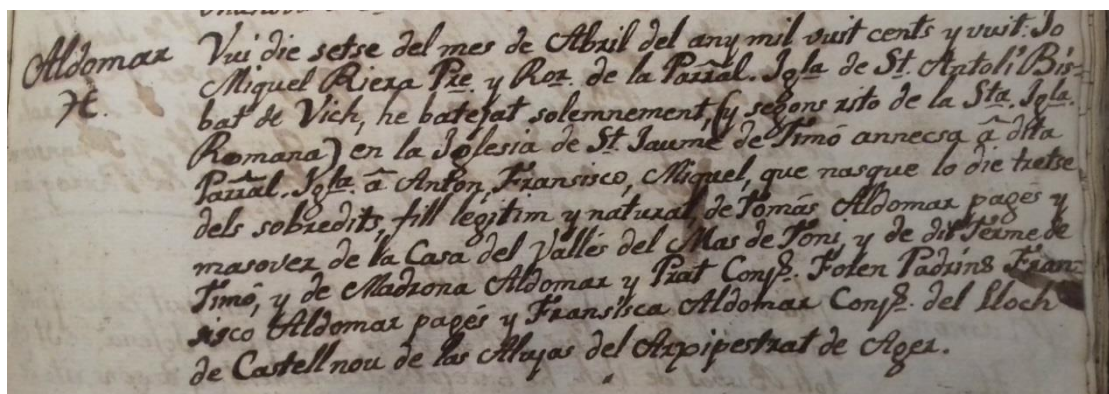 Aldomar
Vui die setse del mes de Abril del any mil vuit cents y vuit: Jo
Miquel Riera Pre. y Ror. de la Parral. Igla de St. Antolí Bis-
bat de Vich, he batejat solemnement, (y segons rito de la Sta. Igla.
Romana) en la Iglesia de St Jaume de Timó annecsa â dita
Parral. Igla. â Anton, Fransisco, Miquel, que nasque lo die tretse
dels sobredits, fill legitim y natural de Tomás Aldomar pagés y
masover de la Casa del Vallés del Mas de Toni, y de dit Terme de
Timó, y de Madrona Aldomar y Prat Conjs. Foren Padrins Fran-
sisco Aldomar pagés y Fransisca Aldomar Conjs. del Lloch
de Castellnou de las Alujas del Arpipestrat de Ager.